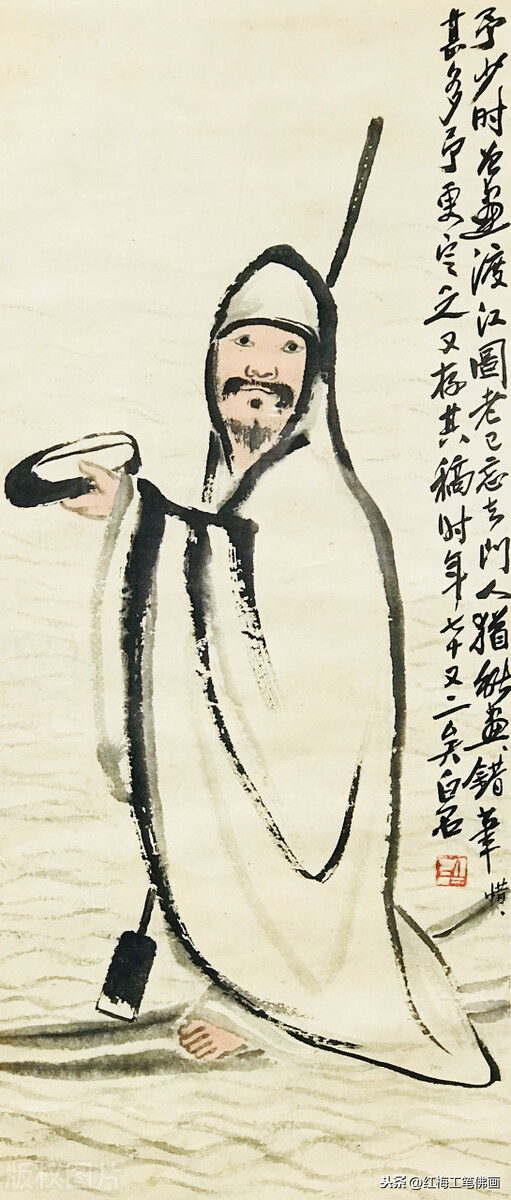 予少时曾画渡江图老已忘去门人犹能画错笔惯
甚多予更定之又存其稿时年七十又二矣白石
版权图片
头条@红梅工笔佛画